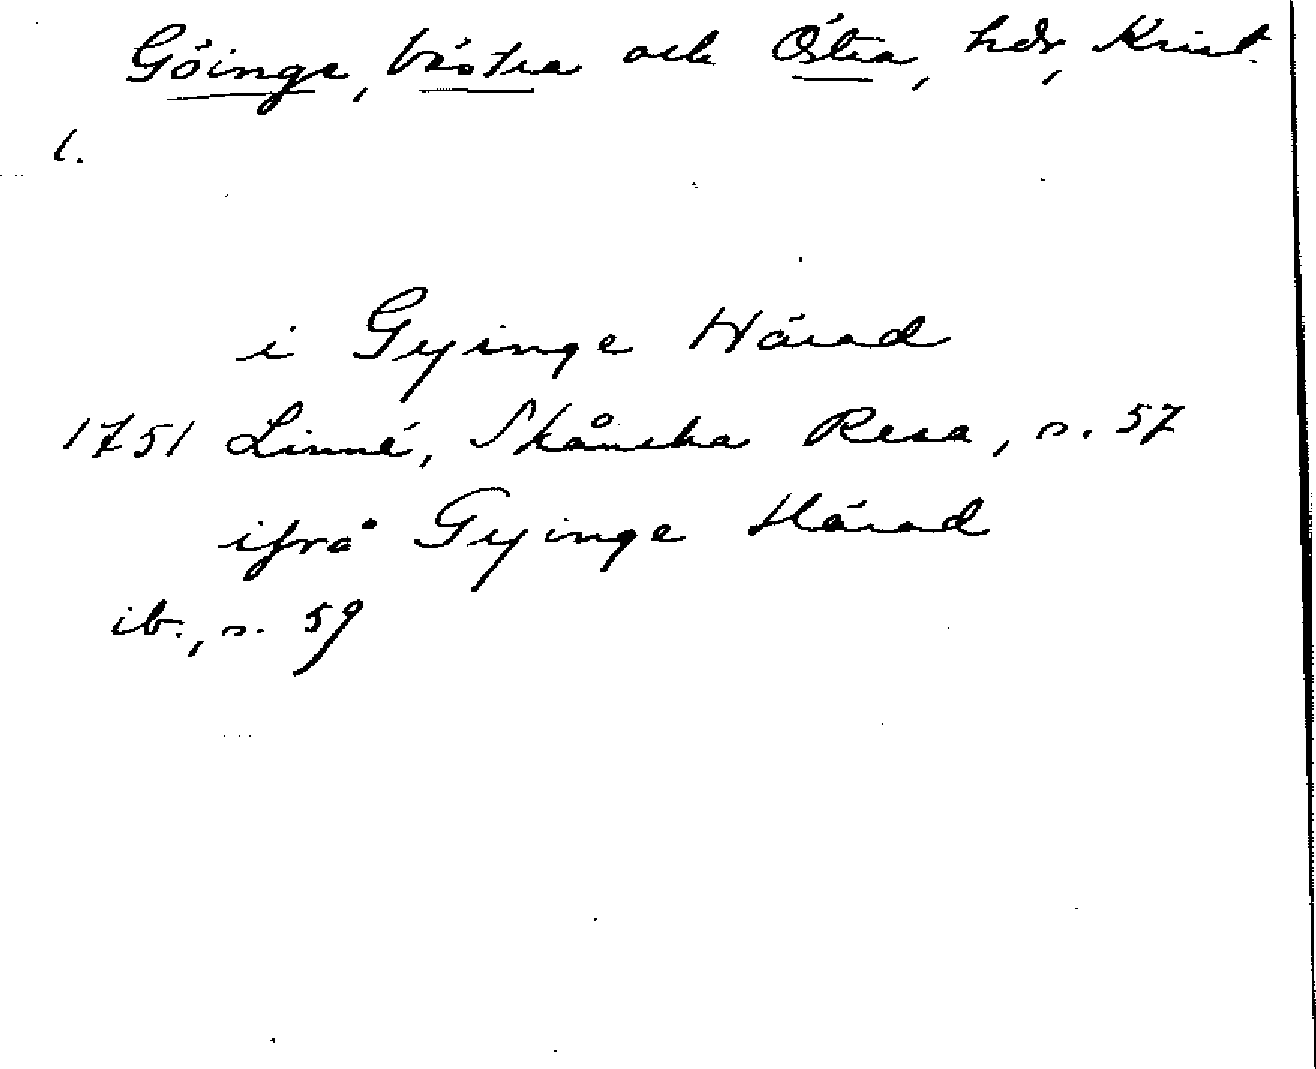 Göinge, Västra och Östra, hdr, Krist.
l.
i Gyinge Härad
1751 Linné, Skånska Resa, s. 57
ifrå Gyinge Härad
ib., s. 59